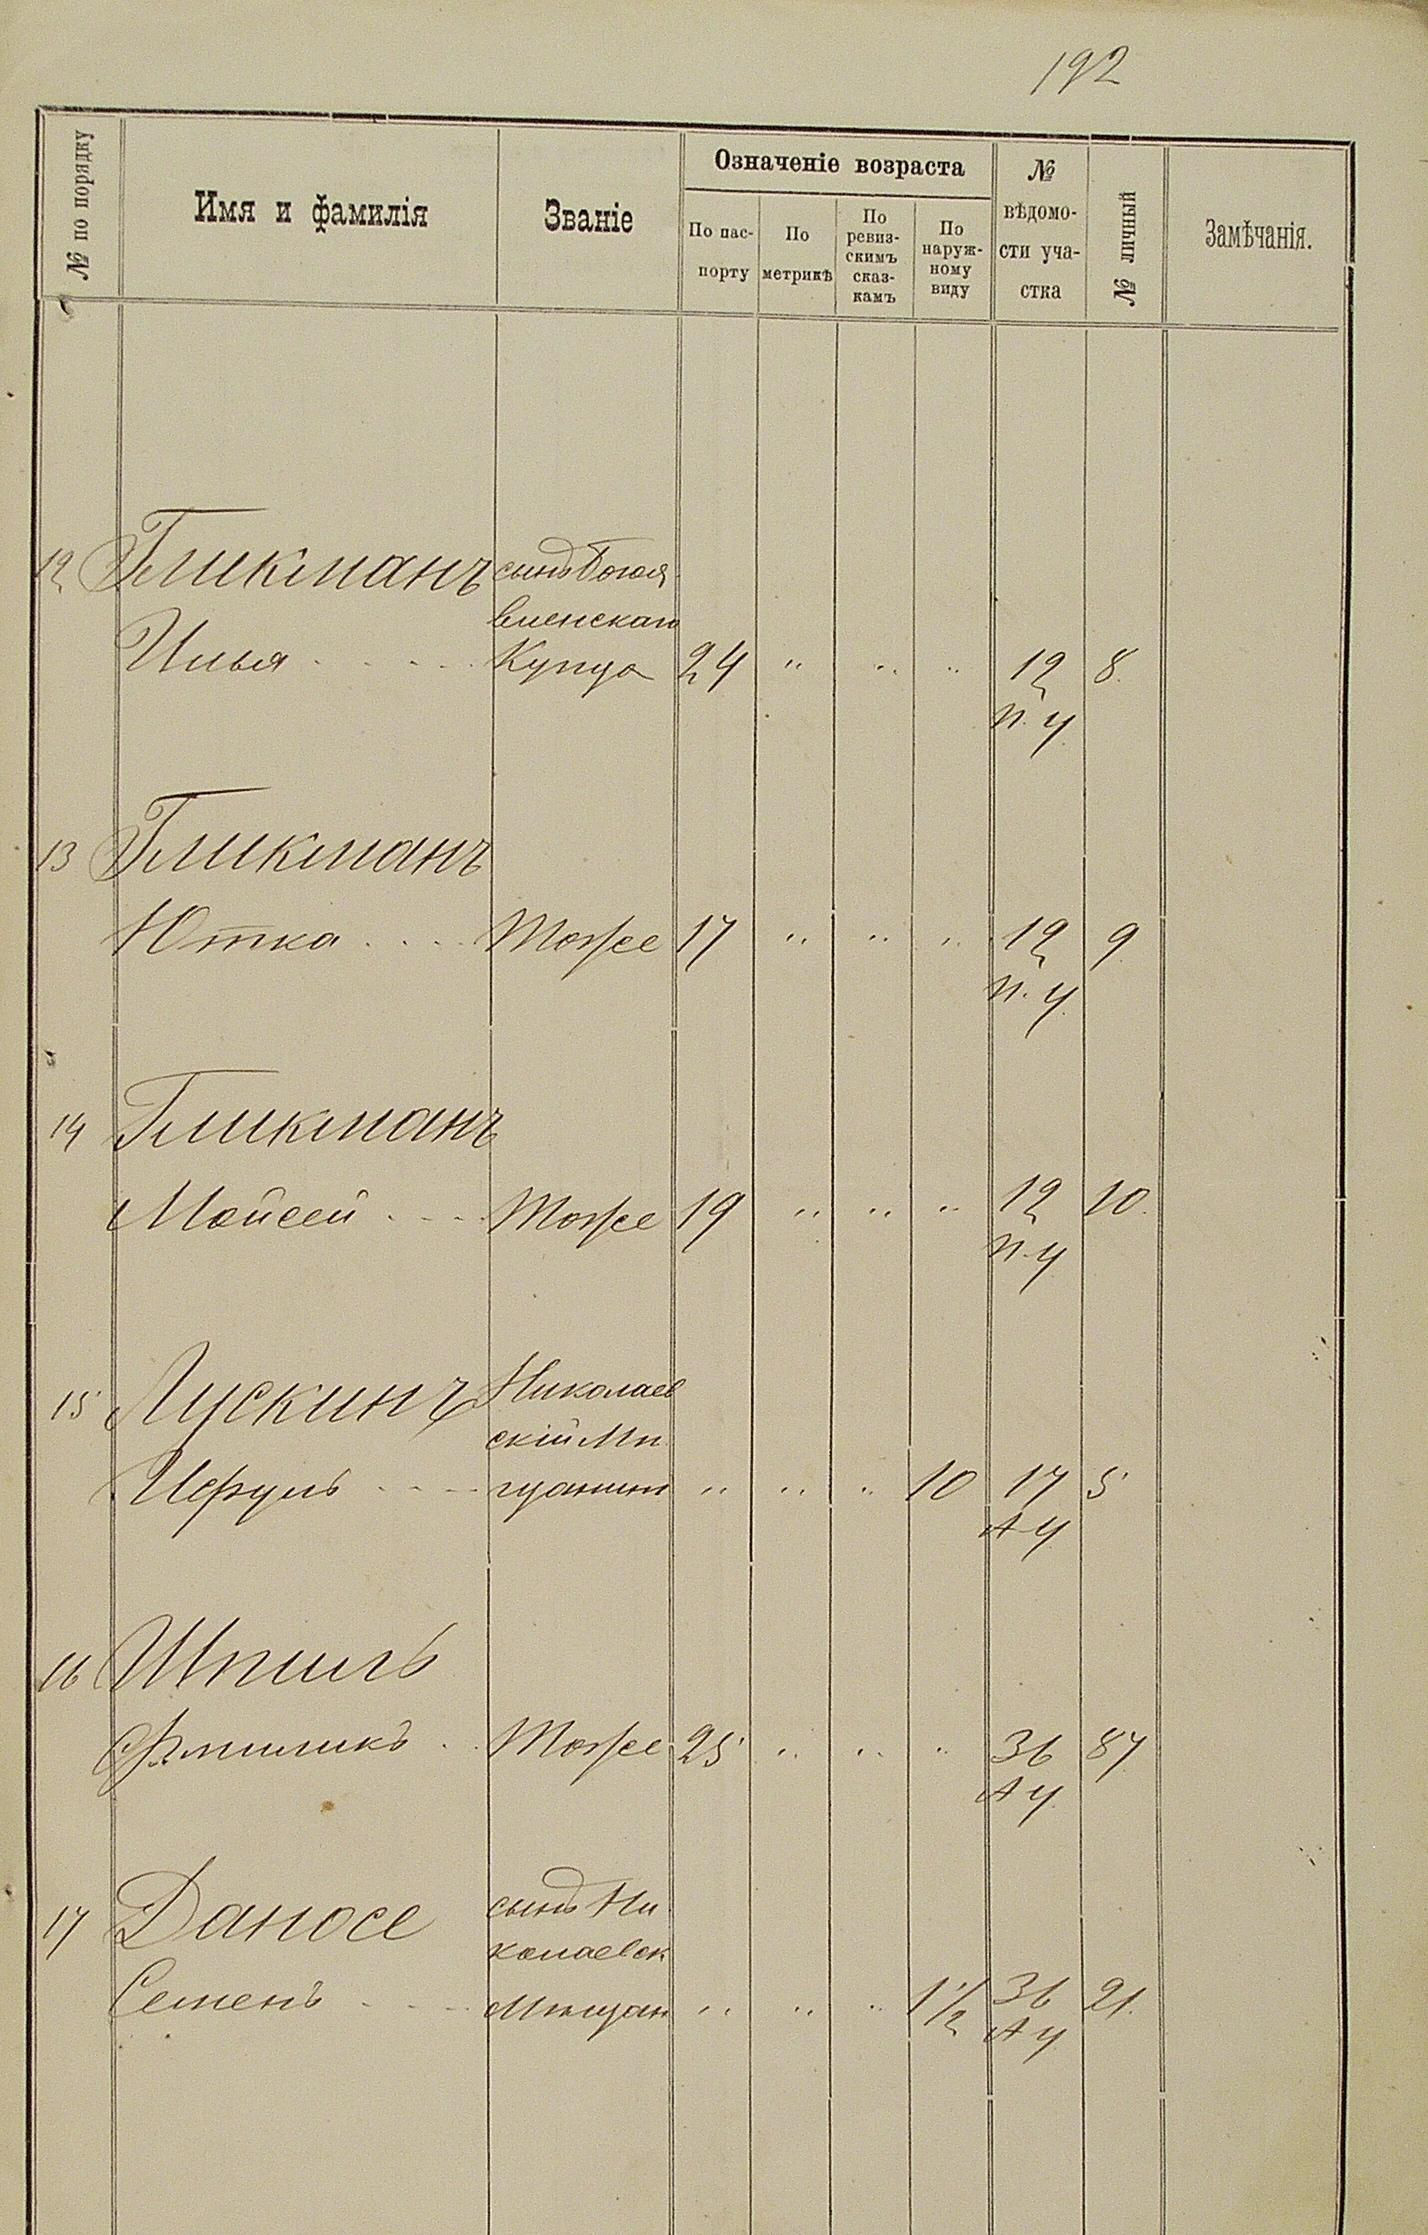 192
№ по порядку
Имя и фамилія
Званіе
Означеніе возраста
По пас-
порту
По
метрикѣ
По
ревиз-
скимъ
сказ-
камъ
По
наруж-
ному
виду
№
вѣдомо-
сти уча-
стка
№ личный
Замѣчанія.
12 Гликманъ сынъ Богоя
вленскаго
Илья купца 24 " " " 12 8.
П.У.
13 Гликманъ
Ютка Тоже 17 " " " 12 9
П.У.
14 Гликманъ
Мойсей Тоже 19 " " " 12 10.
П.У
15 Лускинъ Николаев
скій Мѣ
щанинъ " " " 10 17 5
А У
16 Шпиль
Тоже 25 " " " 36 87
А У.
17 Даносе сынъ Ни
колаевск
Семенъ Мѣщан " " " 1 1/2 36 21.
А У